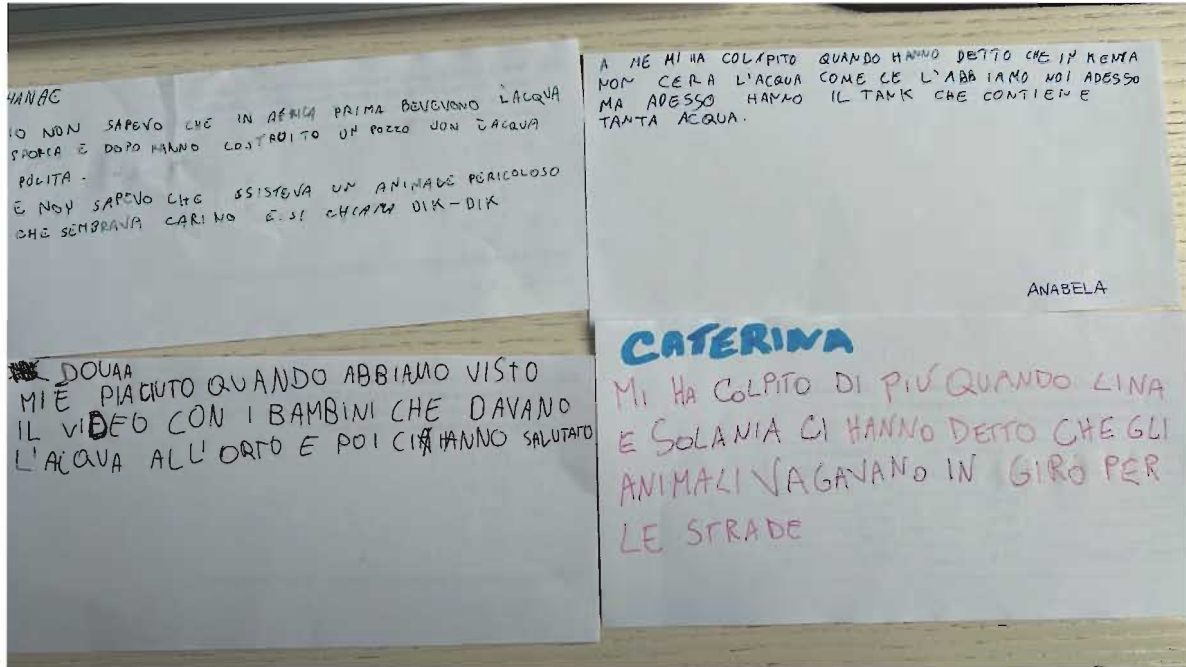 HANAE
IO NON SAPEVO CHE IN AFRICA PRIMA BEVEVONO L'ACQUA
SPORCA E DOPO HANNO COSTRUITO UN POZZO CON L'ACQUA
PULITA.
E NON SAPEVO CHE ESISTEVA UN ANIMALE PERICOLOSO
CHE SEMBRAVA CARINO E SI CHIAMA DIK-DIK
A ME MI HA COLPITO QUANDO HANNO DETTO CHE IN KENIA
NON CERA L'ACQUA COME CE L'ABBIAMO NOI ADESSO
MA ADESSO HANNO IL TANK CHE CONTIENE
TANTA ACQUA.
ANABELA
DOUAA
MI È PIACIUTO QUANDO ABBIAMO VISTO
IL VIDEO CON I BAMBINI CHE DAVANO
L'ACQUA ALL'ORTO E POI CI HANNO SALUTATO
CATERINA
MI HA COLPITO DI PIÙ QUANDO LINA
E SOLANIA CI HANNO DETTO CHE GLI
ANIMALI VAGAVANO IN GIRO PER
LE STRADE